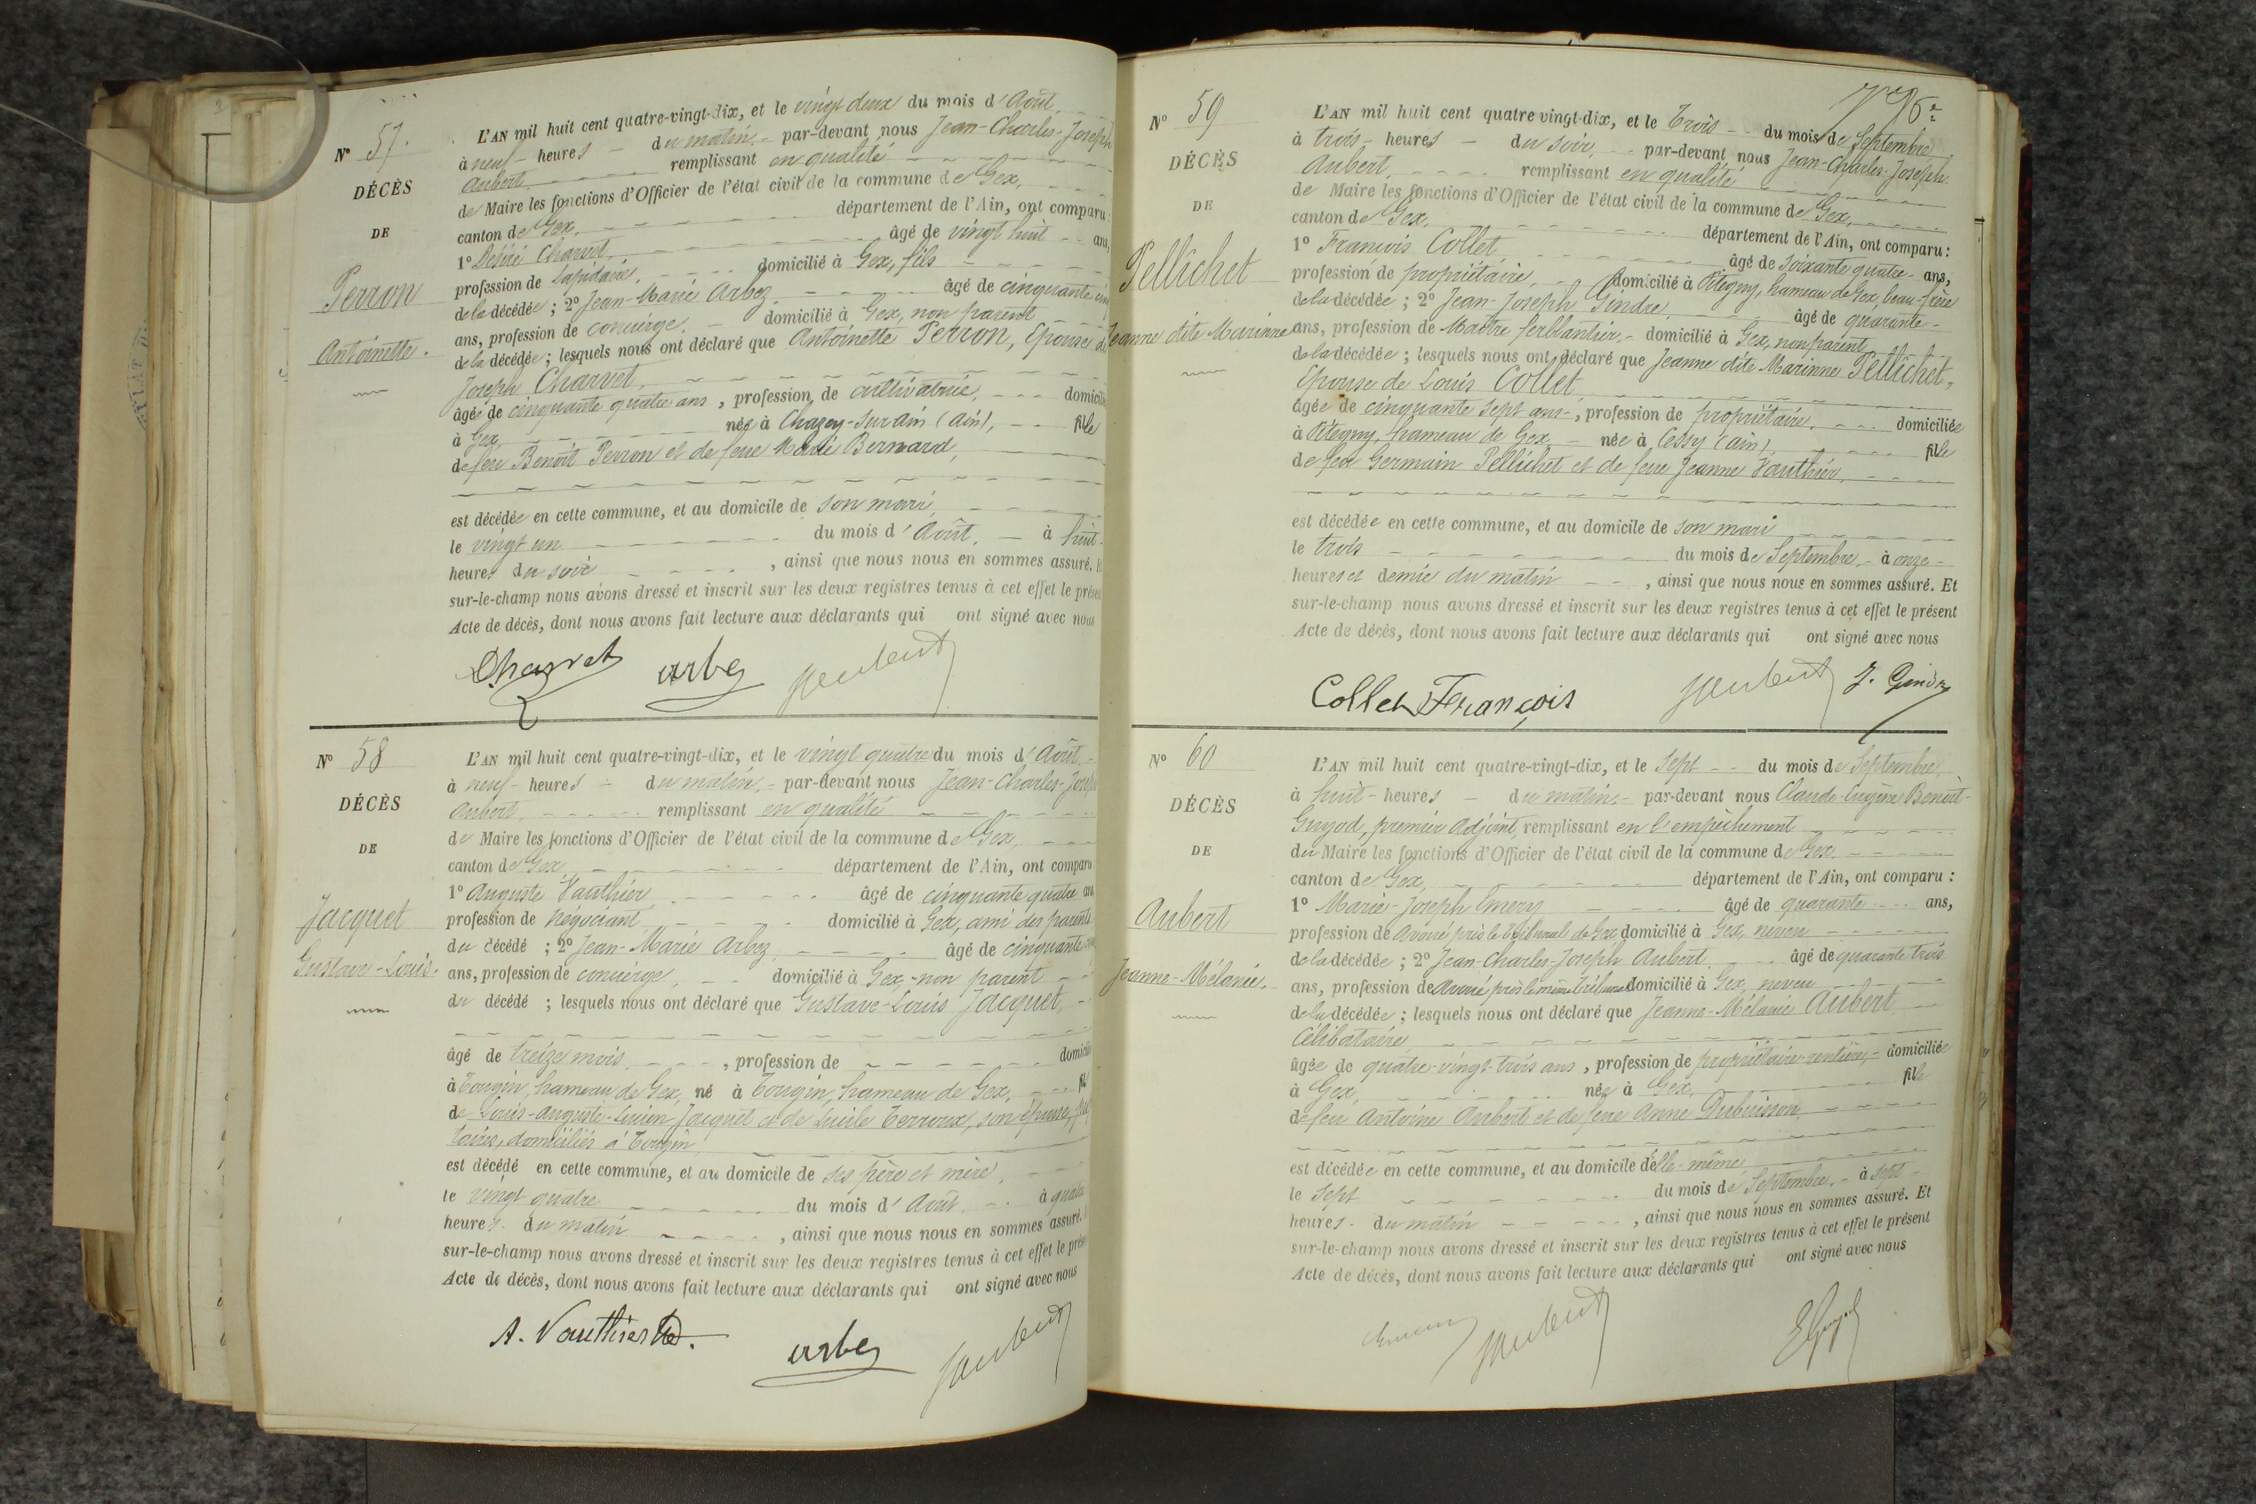 N° 57.
DÉCÈS
DE
Perron
Antoinette.
L'AN mil huit cent quatre-vingt-dix, et le vingt deux du mois d'Août
à neuf heures du matin, par-devant nous Jean-Charles-Joseph
Aubert remplissant en qualité
de Maire les fonctions d'Officier de l'état civil de la commune de Gex,
canton de Gex, département de l'Ain, ont comparu :
1° Désiré Charvet, âgé de vingt huit ans,
profession de Lapidaire, domicilié à Gex, fils
de la décédée ; 2° Jean-Marie Arbez, âgé de cinquante cinq
ans, profession de concierge, domicilié à Gex, non parent
de la décédée ; lesquels nous ont déclaré que Antoinette Perron, Epouse de
Joseph Charvet,
âgée de cinquante quatre ans, profession de cultivatrice, domicili
à Gex, née à Chazey-sur-Ain (Ain), fille
de feu Benoît Perron et de feue Marie Bernard,
est décédée en cette commune, et au domicile de son mari,
le vingt un du mois d'Août, à huit
heures du soir, ainsi que nous nous en sommes assuré. E
sur-le-champ nous avons dressé et inscrit sur les deux registres tenus à cet effet le prése
Acte de décès, dont nous avons fait lecture aux déclarants qui ont signé avec nous
Charvet Arbez J Aubert
N° 58
DÉCÈS
DE
Jacquet
Gustave-Louis.
L'AN mil huit cent quatre-vingt-dix, et le vingt quatre du mois d'Août,
à neuf heures du matin, par-devant nous Jean-Charles-Joseph
Aubert, remplissant en qualité
de Maire les fonctions d'Officier de l'état civil de la commune de Gex,
canton de Gex, département de l'Ain, ont comparu
1° Auguste Vauthier, âgé de cinquante quatre ans
profession de négociant domicilié à Gex, ami des parents
du décédé ; 2° Jean-Marie Arbez, âgé de cinquante cinq
ans, profession de concierge, domicilié à Gex, non parent
du décédé ; lesquels nous ont déclaré que Gustave-Louis Jacquet,
âgé de treize mois, profession de domicilié
à Tougin, hameau de Gex, né à Tougin, hameau de Gex, fil
de Louis-Auguste- Jacquet et de Terroux, son épouse,
domiciliés à Tougin,
est décédé en cette commune, et au domicile de ses père et mère,
le vingt quatre du mois d'Août, à quatre
heures du matin, ainsi que nous nous en sommes assuré.
sur-le-champ nous avons dressé et inscrit sur les deux registres tenus à cet effet le prése
Acte de décès, dont nous avons fait lecture aux déclarants qui ont signé avec nous
A. Vauthier Arbez J Aubert
N° 59
DÉCÈS
DE
Pellichet
Jeanne dite Marinne
L'AN mil huit cent quatre vingt-dix, et le Trois du mois de Septembre
à trois heures du soir, par-devant nous Jean-Charles-Joseph
Aubert, remplissant en qualité
de Maire les fonctions d'Officier de l'état civil de la commune de Gex,
canton de Gex, département de l'Ain, ont comparu :
1° François Collet âgé de soixante quatre ans,
profession de propriétaire, domicilié à Pitegny, hameau de Gex, beau-frère
de la décédée ; 2° Jean-Joseph Gindre, âgé de quarante
ans, profession de Maître ferblantier, domicilié à Gex, non parent
de la décédée ; lesquels nous ont déclaré que Jeanne dite Marinne Pellichet,
Epouse de Louis Collet
âgée de cinquante sept ans, profession de propriétaire, domiciliée
à Pitegny, hameau de Gex née à Cessy (Ain) fille
de feu Germain Pellichet et de feue Jeanne Vauthier,
est décédée en cette commune, et au domicile de son mari
le trois du mois de Septembre, à onze
heures et demie du matin, ainsi que nous nous en sommes assuré. Et
sur-le-champ nous avons dressé et inscrit sur les deux registres tenus à cet effet le présent
Acte de décès, dont nous avons fait lecture aux déclarants qui ont signé avec nous
Collet François J Aubert J. Gindre
N° 60
DÉCÈS
DE
Aubert
Jeanne-Mélanie.
L'AN mil huit cent quatre-vingt-dix, et le Sept du mois de Septembre,
à huit heures du matin, par-devant nous Claude-Eugène Benoit-
Guyod, premier Adjoint, remplissant en l'empêchement
du Maire les fonctions d'Officier de l'état civil de la commune de Gex
canton de Gex, département de l'Ain, ont comparu :
1° Marie-Joseph Emery âgé de quarante ans,
profession de Avoué près le tribunal de Gex domicilié à Gex, neveu
de la décédée ; 2° Jean-Charles-Joseph Aubert âgé de quarante trois
ans, profession de Avoué près le même tribunal domicilié à Gex, neveu
de la décédée ; lesquels nous ont déclaré que Jeanne-Mélanie Aubert
Célibataire
âgée de quatre-vingt-trois ans, profession de propriétaire-rentière, domiciliée
à Gex, née à Gex, fille
de feu Antoine Aubert et de feue Anne Dubuisson,
est décédée en cette commune, et au domicile d'elle-même
le Sept du mois de Septembre, à sept
heures du matin, ainsi que nous nous en sommes assuré. Et
sur-le-champ nous avons dressé et inscrit sur les deux registres tenus à cet effet le présent
Acte de décès, dont nous avons fait lecture aux déclarants qui ont signé avec nous
Emery J Aubert E Guyod